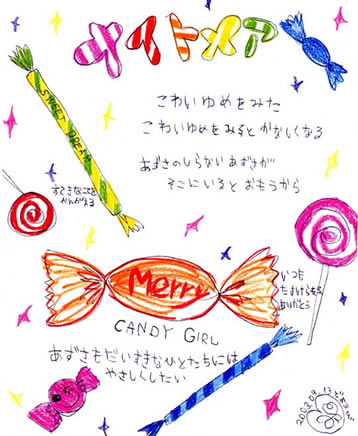 ナイトメア
こわいゆめをみた
こわいゆめをみるとかなしくなる
あずさのしらないあずさが
そこにいるとおもうから
SWEET DREAM
すてきなことを
かんがえる
Merry
CANDY GIRL
いつも
ありがとう
あずさもだいすきなひとたちには
やさしくしたい
2002.09.13